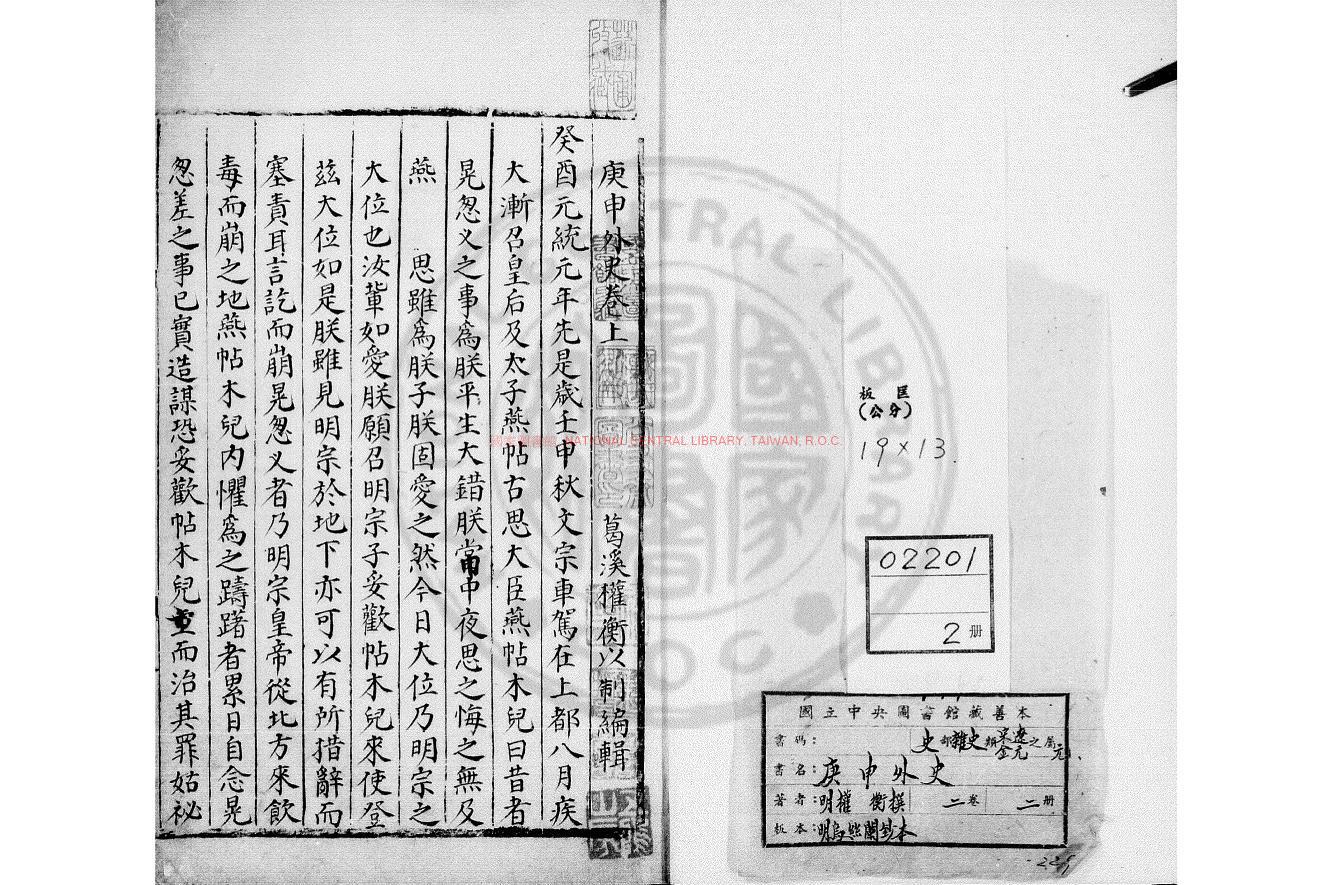 庚申外史卷上 葛溪權衡以制編輯
癸酉元統元年先是歲壬申秋文宗車駕在上都八月疾
大漸召皇后及太子燕帖古思大臣燕帖木兒曰昔者
晃忽义之事爲朕平生大錯朕當中夜思之悔之無及
燕 思雖爲朕子朕固愛之然今日大位乃明宗之
大位也汝輩如愛朕願召明宗子妥歡帖木兒來使登
玆大位如是朕雖見明宗於地下亦可以有所措辭而
塞責耳言訖而崩晃忽义者乃明宗皇帝從北方來飲
毒而崩之地燕帖木兒內懼爲之躊躇者累日自念晃
忽差之事已實造謀恐妥歡帖木兒立而治其罪姑祕
板匡
(公分)
19×13.
02201
2册
國立中央圖書館藏善本
書碼: 史部雜史類宋遼金元之屬元
書名:庚申外史
著者:明權衡撰 二卷 二册
板本:明烏絲闌鈔本
國家圖書館 NATIONAL CENTRAL LIBRARY, TAIWAN, R.O.C.